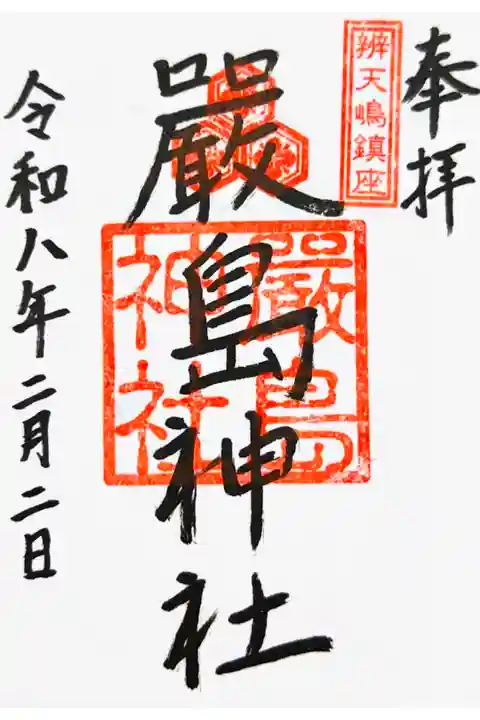 奉拝
辨天嶋鎮座
嚴島神社
嚴島神社
令和八年二月二日